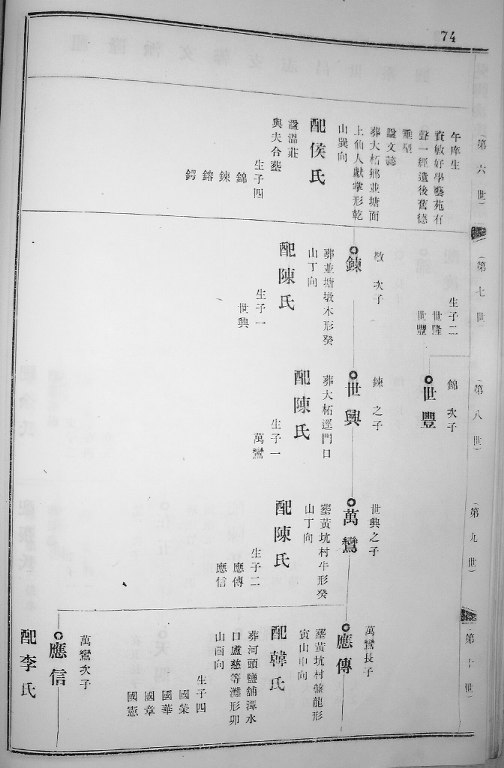 74
第六世
午庠生
資敏好學藝苑有
聲一經遺後舊德
垂型
謚文誌
葬大柘鄉並塘面
上仙人獻掌形乾
山巽向
配侯氏
謚溫莊
與夫合葬
生子四
錦
鍊
鎔
鍔
第七世
生子二
世隆
世豐
敬次子
鍊
葬並塘墩木形癸
山丁向
配陳氏
生子一
世興
第八世
錦次子
世豐
鍊之子
世興
葬大柘逕門口
配陳氏
生子一
萬鸞
第九世
世興之子
萬鸞
塟黃坑村牛形癸
山丁向
配陳氏
生子二
應傳
應信
第十世
萬鸞長子
應傳
塟黃坑村盤龍形
寅山申向
配韓氏
葬河頭鹽舖潭水
口盧慈等灘形卯
山酉向
生子四
國榮
國華
國章
國憲
萬鸞次子
應信
配李氏